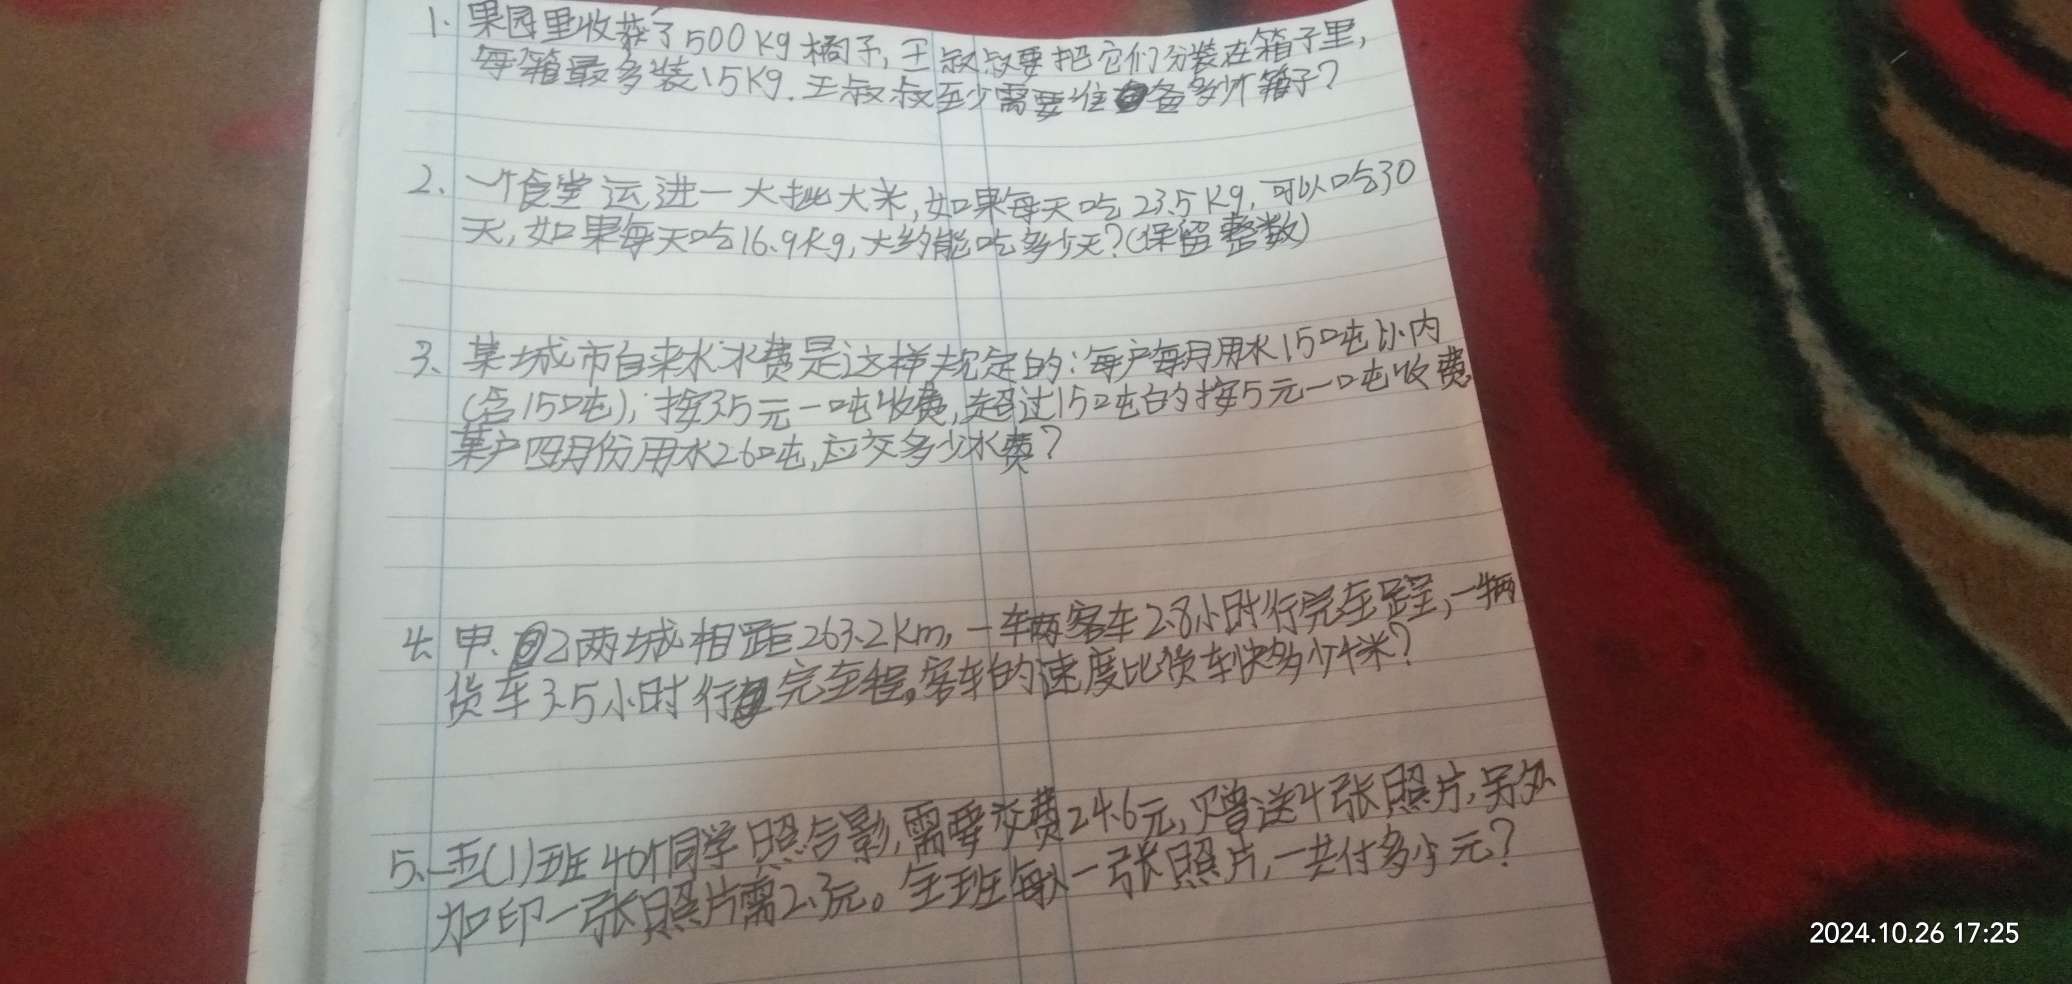 1. 果园里收获了500Kg橘子,王叔叔要把它们分装在箱子里,
每箱最多装15Kg.王叔叔至少需要准备多少个箱子?
2、一个食堂运进一大批大米,如果每天吃23.5Kg,可以吃30
天,如果每天吃16.9Kg,大约能吃多少天?(保留整数)
3、某城市自来水水费是这样规定的:每户每月用水15吨以内
(含15吨),按3.5元一吨收费,超过15吨的按5元一吨收费,
某户四月份用水26吨,应交多少水费?
4. 甲、乙两城相距263.2Km,一车辆客车2.8小时行完全程,一辆
货车3.5小时行完全程。客车的速度比货车快多少千米?
5、五(1)班40个同学照合影,需要交费24.6元,赠送4张照片,另外
加印一张照片需2.3元。全班每人一张照片,一共付多少元?
2024.10.26 17:25